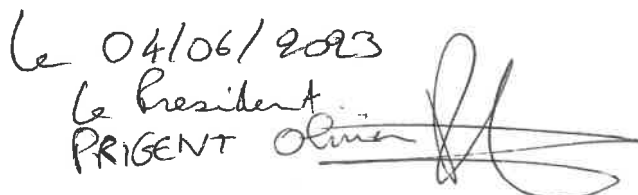 Le 04/06/2023
Le President
PRIGENT Olivier